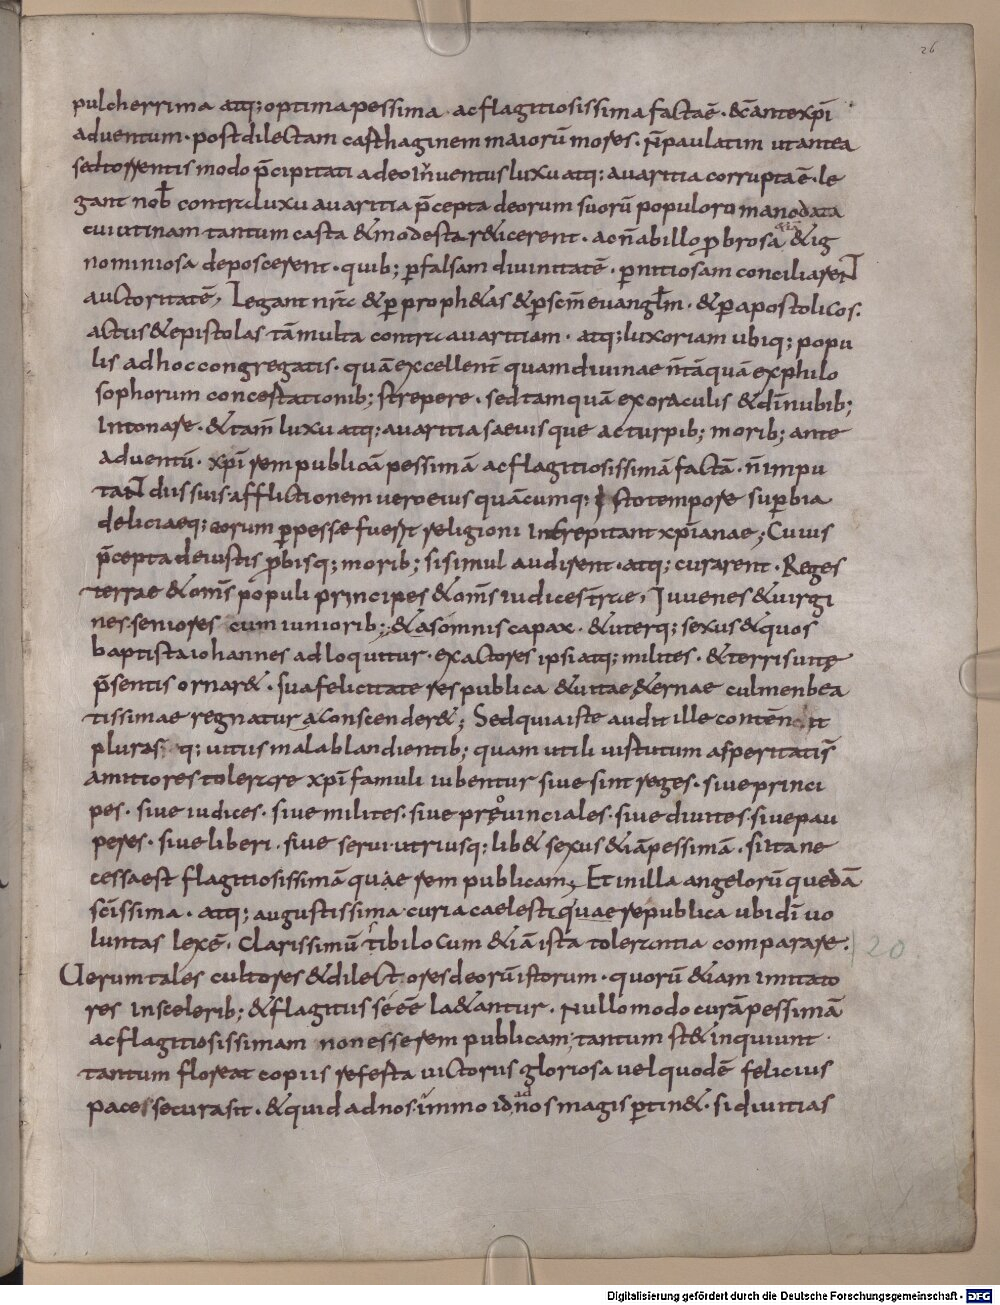 26
pulcherrima atq; optima pessima · ac flagitiosissima facta ē · & c̄ ante xp̄i
adventum · post dilectam carthaginem maiorū mores · n̄ paulatim ut antea
sed torrentis modo p̄cipitati adeo iuventus luxu atq; avaritia corrupta ē · le
gant nob̄ contra luxu avaritia p̄cepta deorum suorū populo romano data
cui utinam tantum casta & modesta r&icerent · ac n̄ ab illo probrosa &iā & ig
nominiosa deposcerent · quib; p falsam divinitatē · pnitiosam conciliarent
auctoritatē, Legant nr̄a & p proph&as & p sc̄m evangl̄m · & p apostolicos
actus & epistolas tā multa contra avaritiam · atq; luxoriam ubiq; popu
lis ad hoc congregatis · quā excellent̄ quam divinae n̄ tā quā ex philo
sophorum concestationib; strepere · sed tamquā ex oraculis & dī nubib;
intonare · & tam̄ luxu atq; avaritia saevisque ac turpib; morib; ante
adventū · xp̄i rem publicā pessimā ac flagitiosissimā factā · n̄ impu
tant diis suis afflictionem vero eius quācumq; isto tempore supbia
deliciaeq; eorum ppessae fuerit religioni increpitant xp̄ianae; Cuius
p̄cepta de iustis probisq; morib; si simul audirent · atq; curarent · Reges
terrae & om̄s populi principes & om̄s iudices t̄rae, Iuvenes & virgi
nes seniores cum iuniorib; & as omnis capax · & uterq; sexus & quos
baptista iohannes adloquitur · exactores ipsi atq; milites · & terris vitę
p̄sentis ornar& · sua felicitate res publica & vitae &ernae culmen bea
tissimae regnatura conscender&; Sed quia iste audit ille contēnit
pluresq; vitiis mala blandientib; quam utili virtutum asperitatis̄
amitiores tolerare xp̄i famuli iubentur sive sint reges · sive princi
pes · sive iudices · sive milites · sive provinciales · sive divites · sive pau
peres · sive liberi · sive servi utriusq; lib& sexus &iā pessimā · si ita ne
cessaest flagitiosissimā quae rem publicam, Et in illa angelorū quedā
sc̄issima · atq; augustissima curia caelestiquae republica ubi dī vo
luntas lex ē · Clarissimū tibi locum &iā ista tolerantia comparare ·
120
Uerum tales cultores & dilectores deorū istorum · quorū &iam imitato
res in scelerib; & flagitiis se eē la&antur · Nullo modo curā pessimā
ac flagitiosissimam non esse rem publicam, tantum st& inquiunt ·
tantum floreat copiis referta victoriis gloriosa vel quod ē felicius
pace secura sit · & quid ad nos · immo id ad nos magis ptin& · si divitias
Digitalisierung gefördert durch die Deutsche Forschungsgemeinschaft - DFG